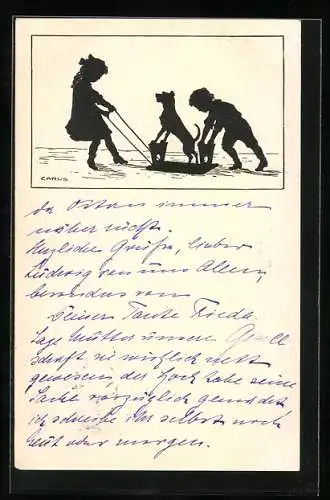 CARUS
da Ostern immer
näher rückt.
Herzliche Grüße, lieber
Ludwig von uns Allen,
besonders von
Deiner Tante Frieda.
Sage Mutter unsere Gesell
schaft sei wirklich nett
gewesen, der Koch habe seine
Sache vorzüglich gemacht
ich schreibe ihr selbst noch
heut oder morgen.